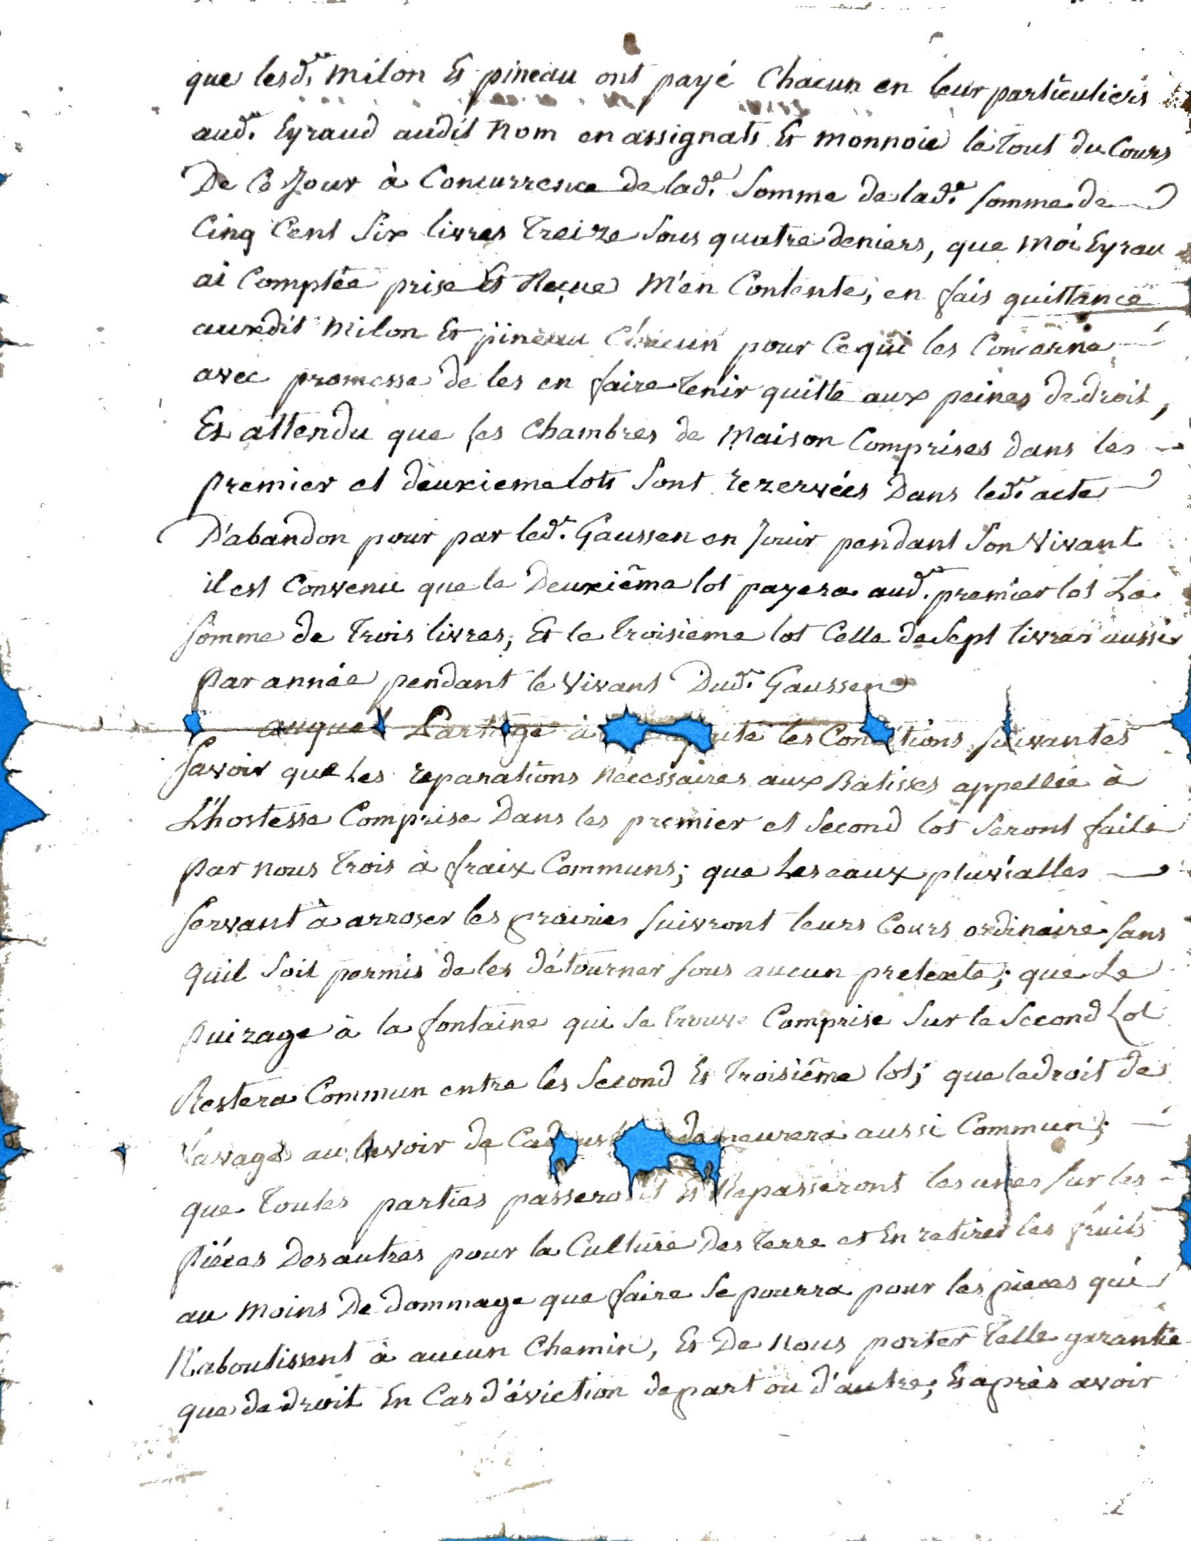 que lesd.rs Milon Et pineau ont payé Chacun en leur particuliers
aud.t Eyraud audit Nom en assignats Et Monnoie le Tout du Cours
De Ce Jour à Concurrence de lad.e Somme de lad.e somme de
Cinq Cent Six livres Treize Sous quatre deniers, que Moi Eyrau
ai Comptée prise Et Reçue M'en Contente, en fais quittance
auxdit Milon Et pineau Chacun pour Ce qui les Concerne
avec promesse de les en faire Tenir quitte aux peines de droit,
Et attendu que les Chambres de Maison Comprises dans les
premier et deuxieme lots Sont rezervées Dans led.t acte
D'abandon pour par led.t Gaussen en Jouir pendant Son Vivant
il est Convenu que le Deuxiême lot payera aud. premier lot La
Somme de Trois livres, Et le Troisieme lot Celle de Sept livres aussi
par année pendant le Vivant Dud.t Gaussen
auquel Partage à les Conditions suivantes
Savoir que Les reparations Necessaires aux Batisses appellée à
L'hostesse Comprise Dans les premier et Second lot Seront faite
par nous Trois à fraix Communs; que Les eaux pluvialles
servant à arroser les prairies suivront leurs Cours ordinaire sans
quil Soit permis de les détourner sous aucun pretexte; que Le
puizage à la fontaine qui Se trouve Comprise Sur le Second Lot
Restera Commun entre les Second Et Troisiême lot; que le droit de
Lavage au Lavoir de demeurera aussi Commun;
que Toutes parties passeront Et Repasseront les unes sur les
piéces Des autres pour la Culture Des Terre et En retirer les fruits
au Moins De dommage que faire Se pourra pour les pieces qui
N'aboutissent à aucun Chemin, Et De Nous porter Telle garantie
que de droit En Cas d'éviction de part ou d'autre; Et après avoir